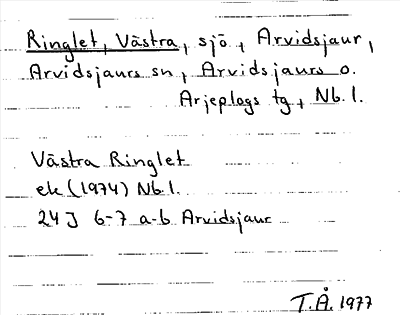 Ringlet, Västra, sjö, Arvidsjaur,
Arvidsjaurs sn, Arvidsjaurs o.
Arjeplogs tg, Nb. l.
Västra Ringlet
ek (1974) Nb. l.
24 J 6-7 a-b Arvidsjaur
T.Å. 1977